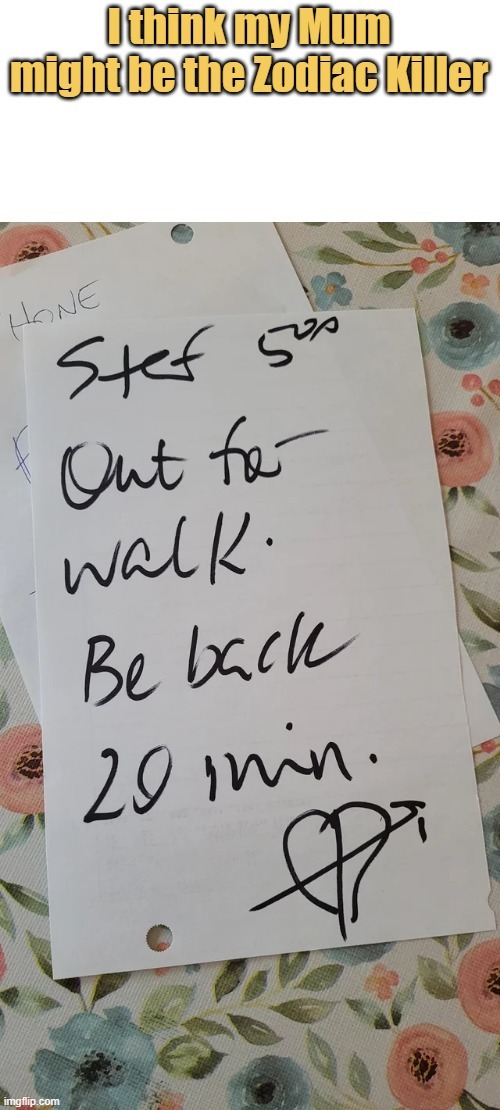 I think my Mum
might be the Zodiac Killer
HONE
Stef 5⁰⁰
Out for
walk.
Be back
20 min.
imgflip.com